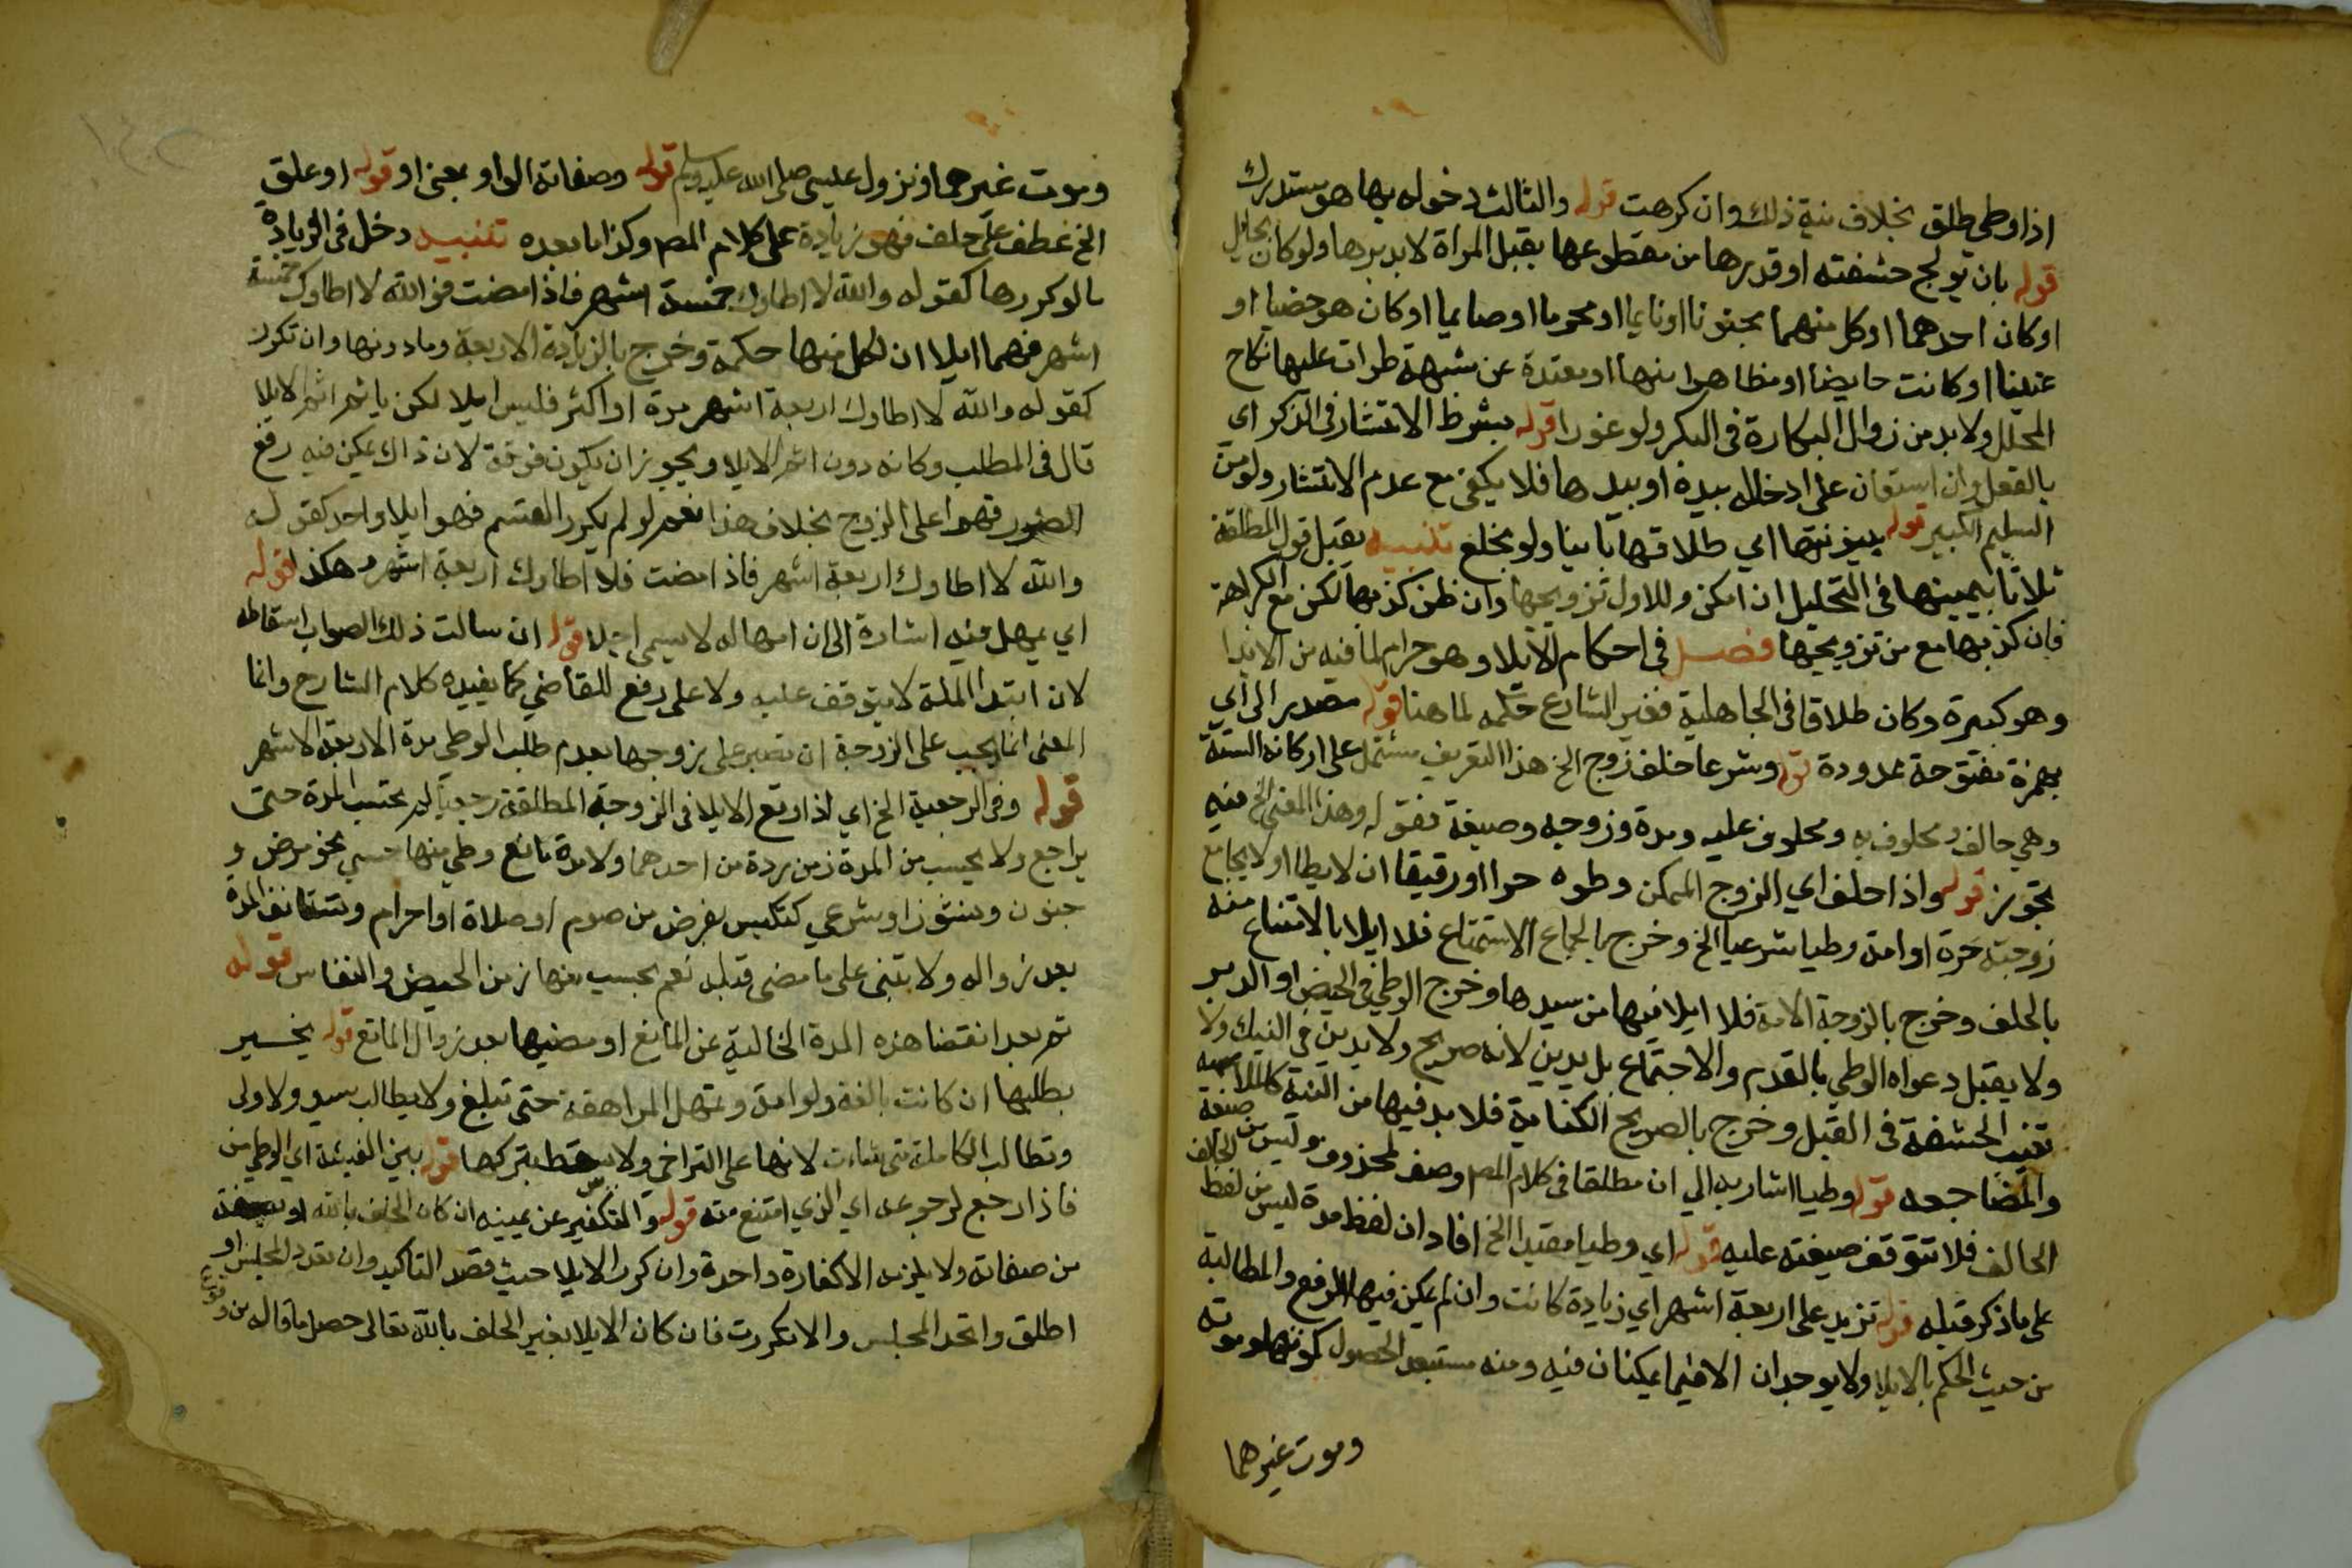 اذا وطى طلق بخلاف نية ذلك وان كرهت قوله والثالث دخوله بها هو مستدرك
قوله بان يولج حشفته او قدرها من مقطوعها بقبل المراة لا بدبرها ولو كان بحايل
او كان احدهما او كل منهما مجنونا او نايما او محرما او صايما او كان هو خصيا او
عنينا او كانت حايضا او مظاهرا منها او معتدة عن شبهة طرات عليها نكاح
المحلل ولا بد من زوال البكارة في البكر ولو غورا قوله بشرط الانتشار في الذكر اي
بالفعل وان استعان على ادخاله بيده او بيدها فلا يكفي مع عدم الانتشار ولو من
السليم الكبير قوله بينونتها اي طلاقها باينا ولو بخلع تنبيه يقبل قول المطلقة
ثلاثا بيمينها في التحليل ان امكن وللاول تزويجها وان ظن كذبها لكن مع الكراهة
فان كذبها منع من تزويجها فصل في احكام الايلا وهو حرام لما فيه من الايذا
وهو كبيرة وكان طلاقا في الجاهلية فغير الشارع حكمه لما هنا قوله مصدر الى اي
بهمزة مفتوحة ممدودة قوله وشرعا حلف زوج الخ هذا التعريف مشتمل على اركانه الستة
وهي حالف ومحلوف به ومحلوف عليه ومدة وزوجه وصيغة فقوله وهذا المعنى الخ فيه
تجوز قوله واذا حلف اي الزوج الممكن وطوه حرا او رقيقا ان لا يطا او لا يجامع
زوجته حرة او امة وطيا شرعيا الخ وخرج بالجماع الاستمتاع فلا ايلا بالامتناع منه
بالحلف وخرج بالزوجة الامة فلا ايلا فيها من سيدها وخرج الوطي في الحيض او الدبر
ولا يقبل دعواه الوطي بالقدم والاجتماع بل يدين لانه صريح ولا يدين في النيك ولا
تغييب الحشفة في القبل وخرج بالصريح الكناية فلا بد فيها من النية كالملامسة
والمضاجعه قوله وطيا اشار به الي ان مطلقا في كلام المصـ وصف لمحذوف وليس من صيغة الحالف
الحالف فلا تتوقف صيغته عليه قوله اي وطيا مقيدا الخ افاد ان لفظ مدة ليس من لفظ
على ما ذكر قبله قوله تزيد على اربعة اشهر اي زيادة كانت وان لم يمكن فيها الرفع والمطالبة
من حيث الحكم بالايلا ولا يوجدان الا فيما يمكنان فيه ومنه مستبعد الحصول كموتها وموته
وموت غيرهما
وموت غيرهما ونزول عليسى صلى الله عليه وسلم قوله وصفاته الواو بمعنى او قوله او علق
الخ عطف على حلف فهو زيادة على كلام المصـ وكذا ما بعده تنبيه دخل في الزيادة
ما لو كررها كقوله والله لا اطاوك خمسة اشهر فاذا مضت فوالله لا اطاوك خمسة
اشهر فهما ايلا ان لكل منهما حكمه وخرج بالزيادة الاربعة وما دونها وان تكرر
كقوله والله لا اطاوك اربعة اشهر مرة او اكثر فليس ايلا لكن ياثم اثم الايلا
قال في المطلب وكانه دون اثم الايلا ويجوز ان يكون فوقه لان ذاك يمكن فيه رفع
الضرر قهرا على الزوج بخلاف هذا نعم لو لم يكرر القسم فهو ايلا واحد كقوله
والله لا اطاوك اربعة اشهر فاذا مضت فلا اطاوك اربعة اشهر وهكذا قوله
اي يمهل فيه اشارة الى ان امهاله لا يسمى اجلا قوله ان سالت ذلك الصواب اسقاطه
لان ابتدا المدة لا يتوقف عليه ولا على رفع للقاضي كما يفيده كلام الشارح وانما
المعنى انما يجب على الزوجة ان تصبر على زوجها بعدم طلب الوطي مدة الاربعة الاشهر
قوله وفي الرجعية الخ اي اذا وقع الايلا في الزوجة المطلقة رجعيا لم تحتسب المدة حتى
يراجع ولا يحسب من المدة زمن ردة من احدهما ولا مدة مانع وطي منها حسي نحو مرض و
جنون ونشوز او شرعي كتلبس بفرض من صوم او صلاة او احرام وتستانف المدة
بعد زواله ولا تبنى على ما مضى قبله نعم يحسب منها زمن الحيض والنفاس قوله
ثم بعد انقضا هذه المدة الخالية عن المانع او مضيها بعد زوال المانع قوله يخير
بطلبها ان كانت بالغة ولو امة وتمهل المراهقة حتى تبلغ ولا يطالب سيد ولا ولى
وتطالب الكاملة متى شاءت لانها على التراخي ولا يسقط بتركها قوله بين الفيئة اي الوطي من
فاذا رجع لرجوعه اي الذي امتنع منه قوله والتكفير عن يمينه ان كان الحلف بالله او بصفة
من صفاته ولا يلزمه الا كفارة واحدة وان كرر الايلا حيث قصد التاكيد وان تعدد المجلس او
اطلق واتحد المجلس والا تكررت فان كان الايلا بغير الحلف بالله تعالى حصل ما قاله من وقوع